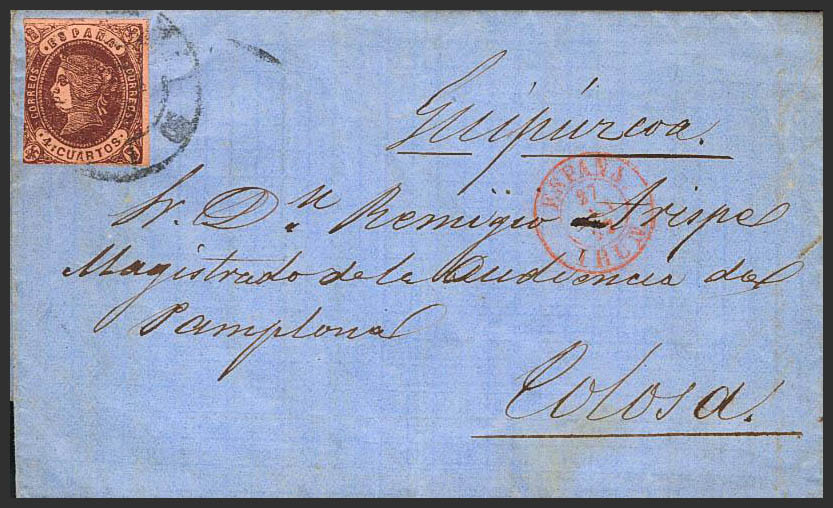 ESPAÑA
CORREOS CORREOS
4 CUARTOS
Guipúrcoa.
ESPANA
27
IRUN
Sr. D.n Remigio Arispe
Magistrado de la Audiencia de
Pamplona
Tolosa.